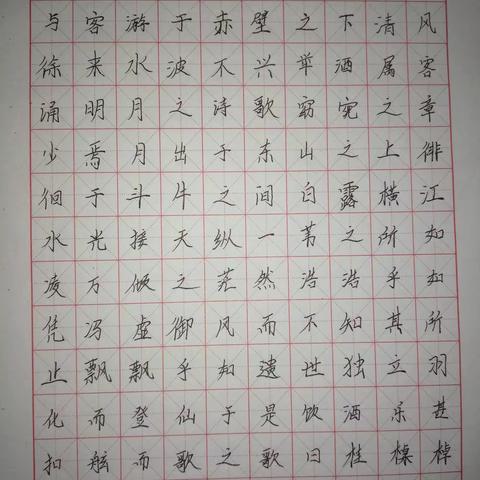 与客游于赤壁之下清风
徐来水波不兴举酒属客
诵明月之诗歌窈窕之章
少焉月出于东山之上徘
徊于斗牛之间白露横江
水光接天纵一苇之所如
凌万倾之茫然浩浩乎如
凭冯虚御风而不知其所
止飘飘乎如遗世独立羽
化而登仙于是饮酒乐甚
扣舷而歌之歌曰桂棹